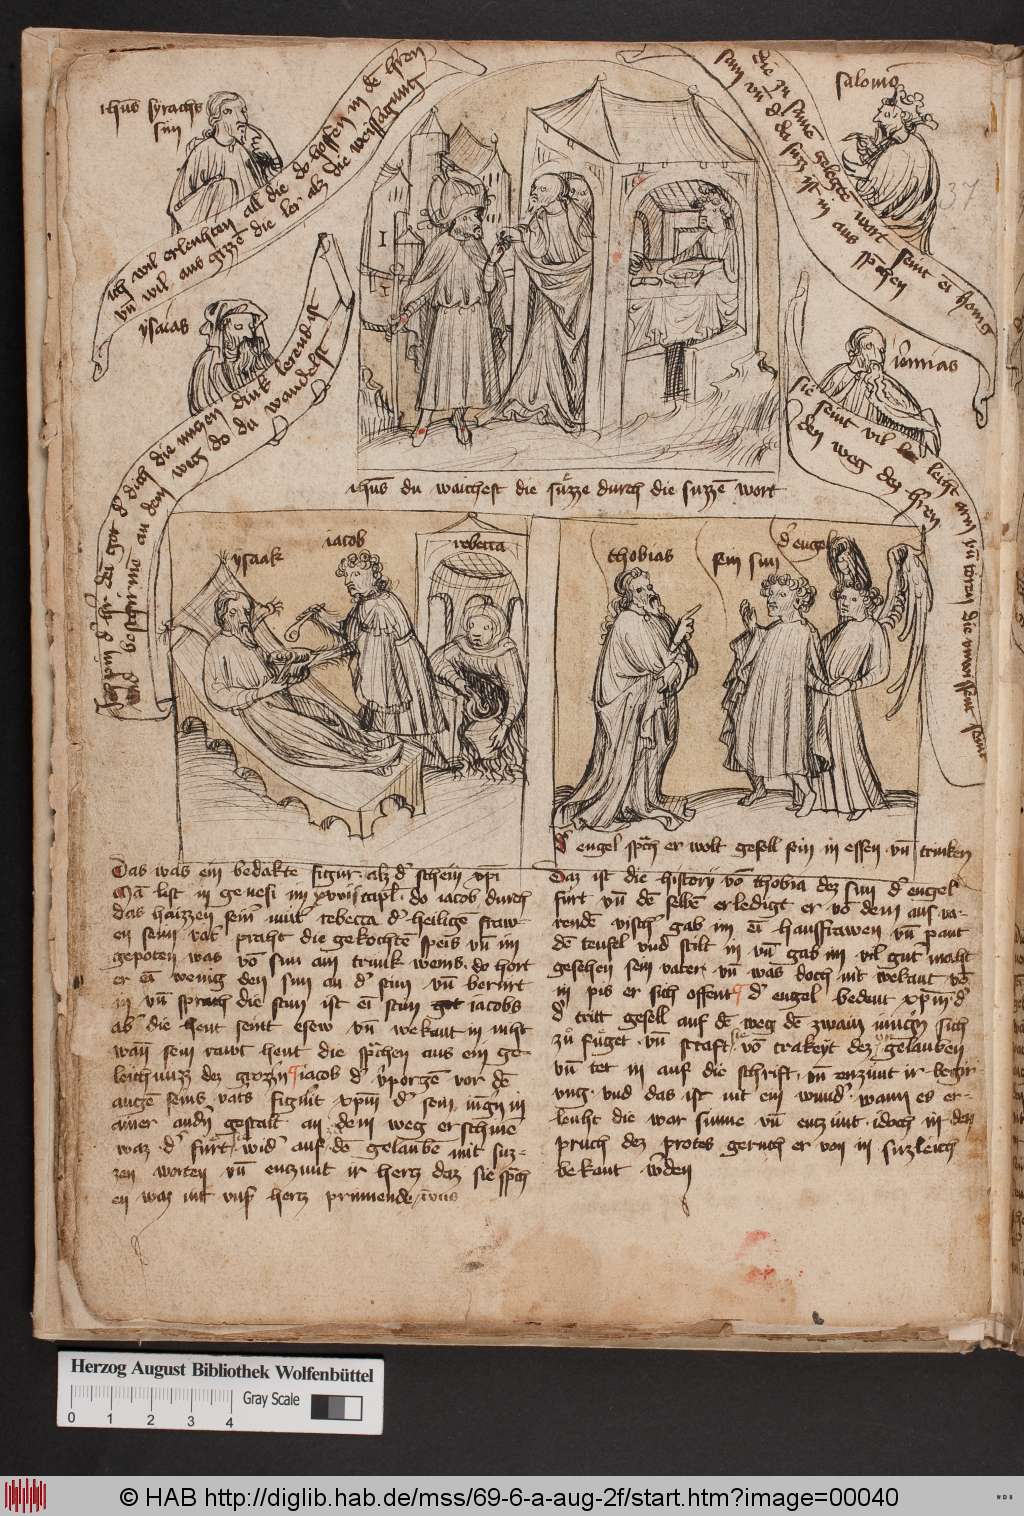 ihus syrachs
sun
ich wil erleuhtan all die do hoffen in de hren
vn wil aus gizze die ler alz die weissagung
ysaias
got dich die nuczen dink lerend ist
an dem weg do du wandelst
salomo
37
die zu same gelegte wort seint ei honig
sam vn da suzz ist in aus sprchen
ieremias
sie seint vil leiht arm vn toren die unwissent seint
den weg dez hren
ihus du waichest die suzze durch die suzzen wort
ysaak
iacob
rebecca
thobias
sein sun
d' engel
d' engel sprch er wolt gesell sein in essen vn trinken
Das was ein bedakte figur alz d' schein xpi
Ma list in genesi im xxvii capl do iacob durch
das haizzen sein mut rebecca d' heilige fraw-
en seim vat' praht die gekochte speis vn im
gepoten was vo sim am trunk weins do hort
er ei wenig den sun an d' stim vn berurt
in vn sprach die stim ist ei stim iacobs
ab' die hent seint esew vn wekant in niht
wan sein rawe hent die sprchen aus ein ge-
leichnuzz dez grozen iacob d' v'porgen vor de
augen seins vats figurirt xpm d' sein iungern in
ainer andn gestalt an dem weg erschine
waz d' furt wid' auf de gelauben mit suz-
zen worten vn enczunt ir hercz daz sie sprch
en waz nit vns' hercz prinnende in uns
Daz ist die history vo thobia dez sun d' engel
furt vn de selbe erledigt er vo dem aus va-
rende visch' gab im ei hausfrawen vn pant
de teufel und stilt in vn gab im vil gut maht
gesehen sein vater vn was doch nit wekant vo
in pis er sich offent d' engel bedeut xpm d'
d' tritt gesell auf de weg de zwain iungern sich
zu fuget vn straft sie vo trakeyt dez gelauben
vn tet in auf die schrift vn enzunt ir begir
ung und das ist nit ein wund' wann es er-
leuht die war sunne vn enczunt idoch in den
pruch dez protes geruch er von in suzleich
bekant werden
Herzog August Bibliothek Wolfenbüttel
Gray Scale
0 1 2 3 4
© HAB http://diglib.hab.de/mss/69-6-a-aug-2f/start.htm?image=00040